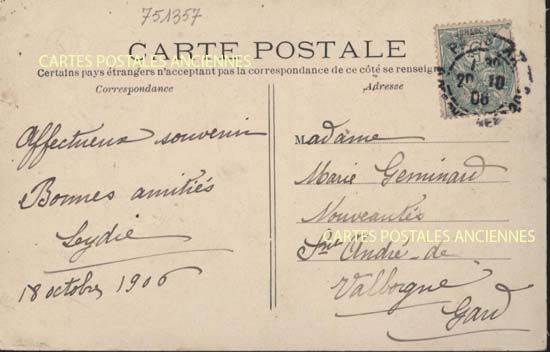 751357
CARTES POSTALES ANCIENNES
CARTE POSTALE
Certains pays étrangers n'acceptant pas la correspondance de ce côté se renseign
Correspondance
Adresse
Affectueux souvenir
Bonnes amitiés
Leydie
18 octobre 1906
Madame
Marie Geminard
Nouveautés
CARTES POSTALES ANCIENNES
André de
Valborgne
Gard
20 10
06
CARTES POSTALES ANCIENNES